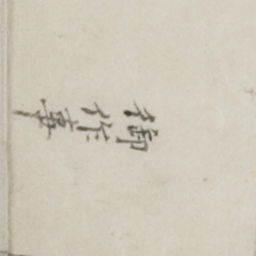 御作事